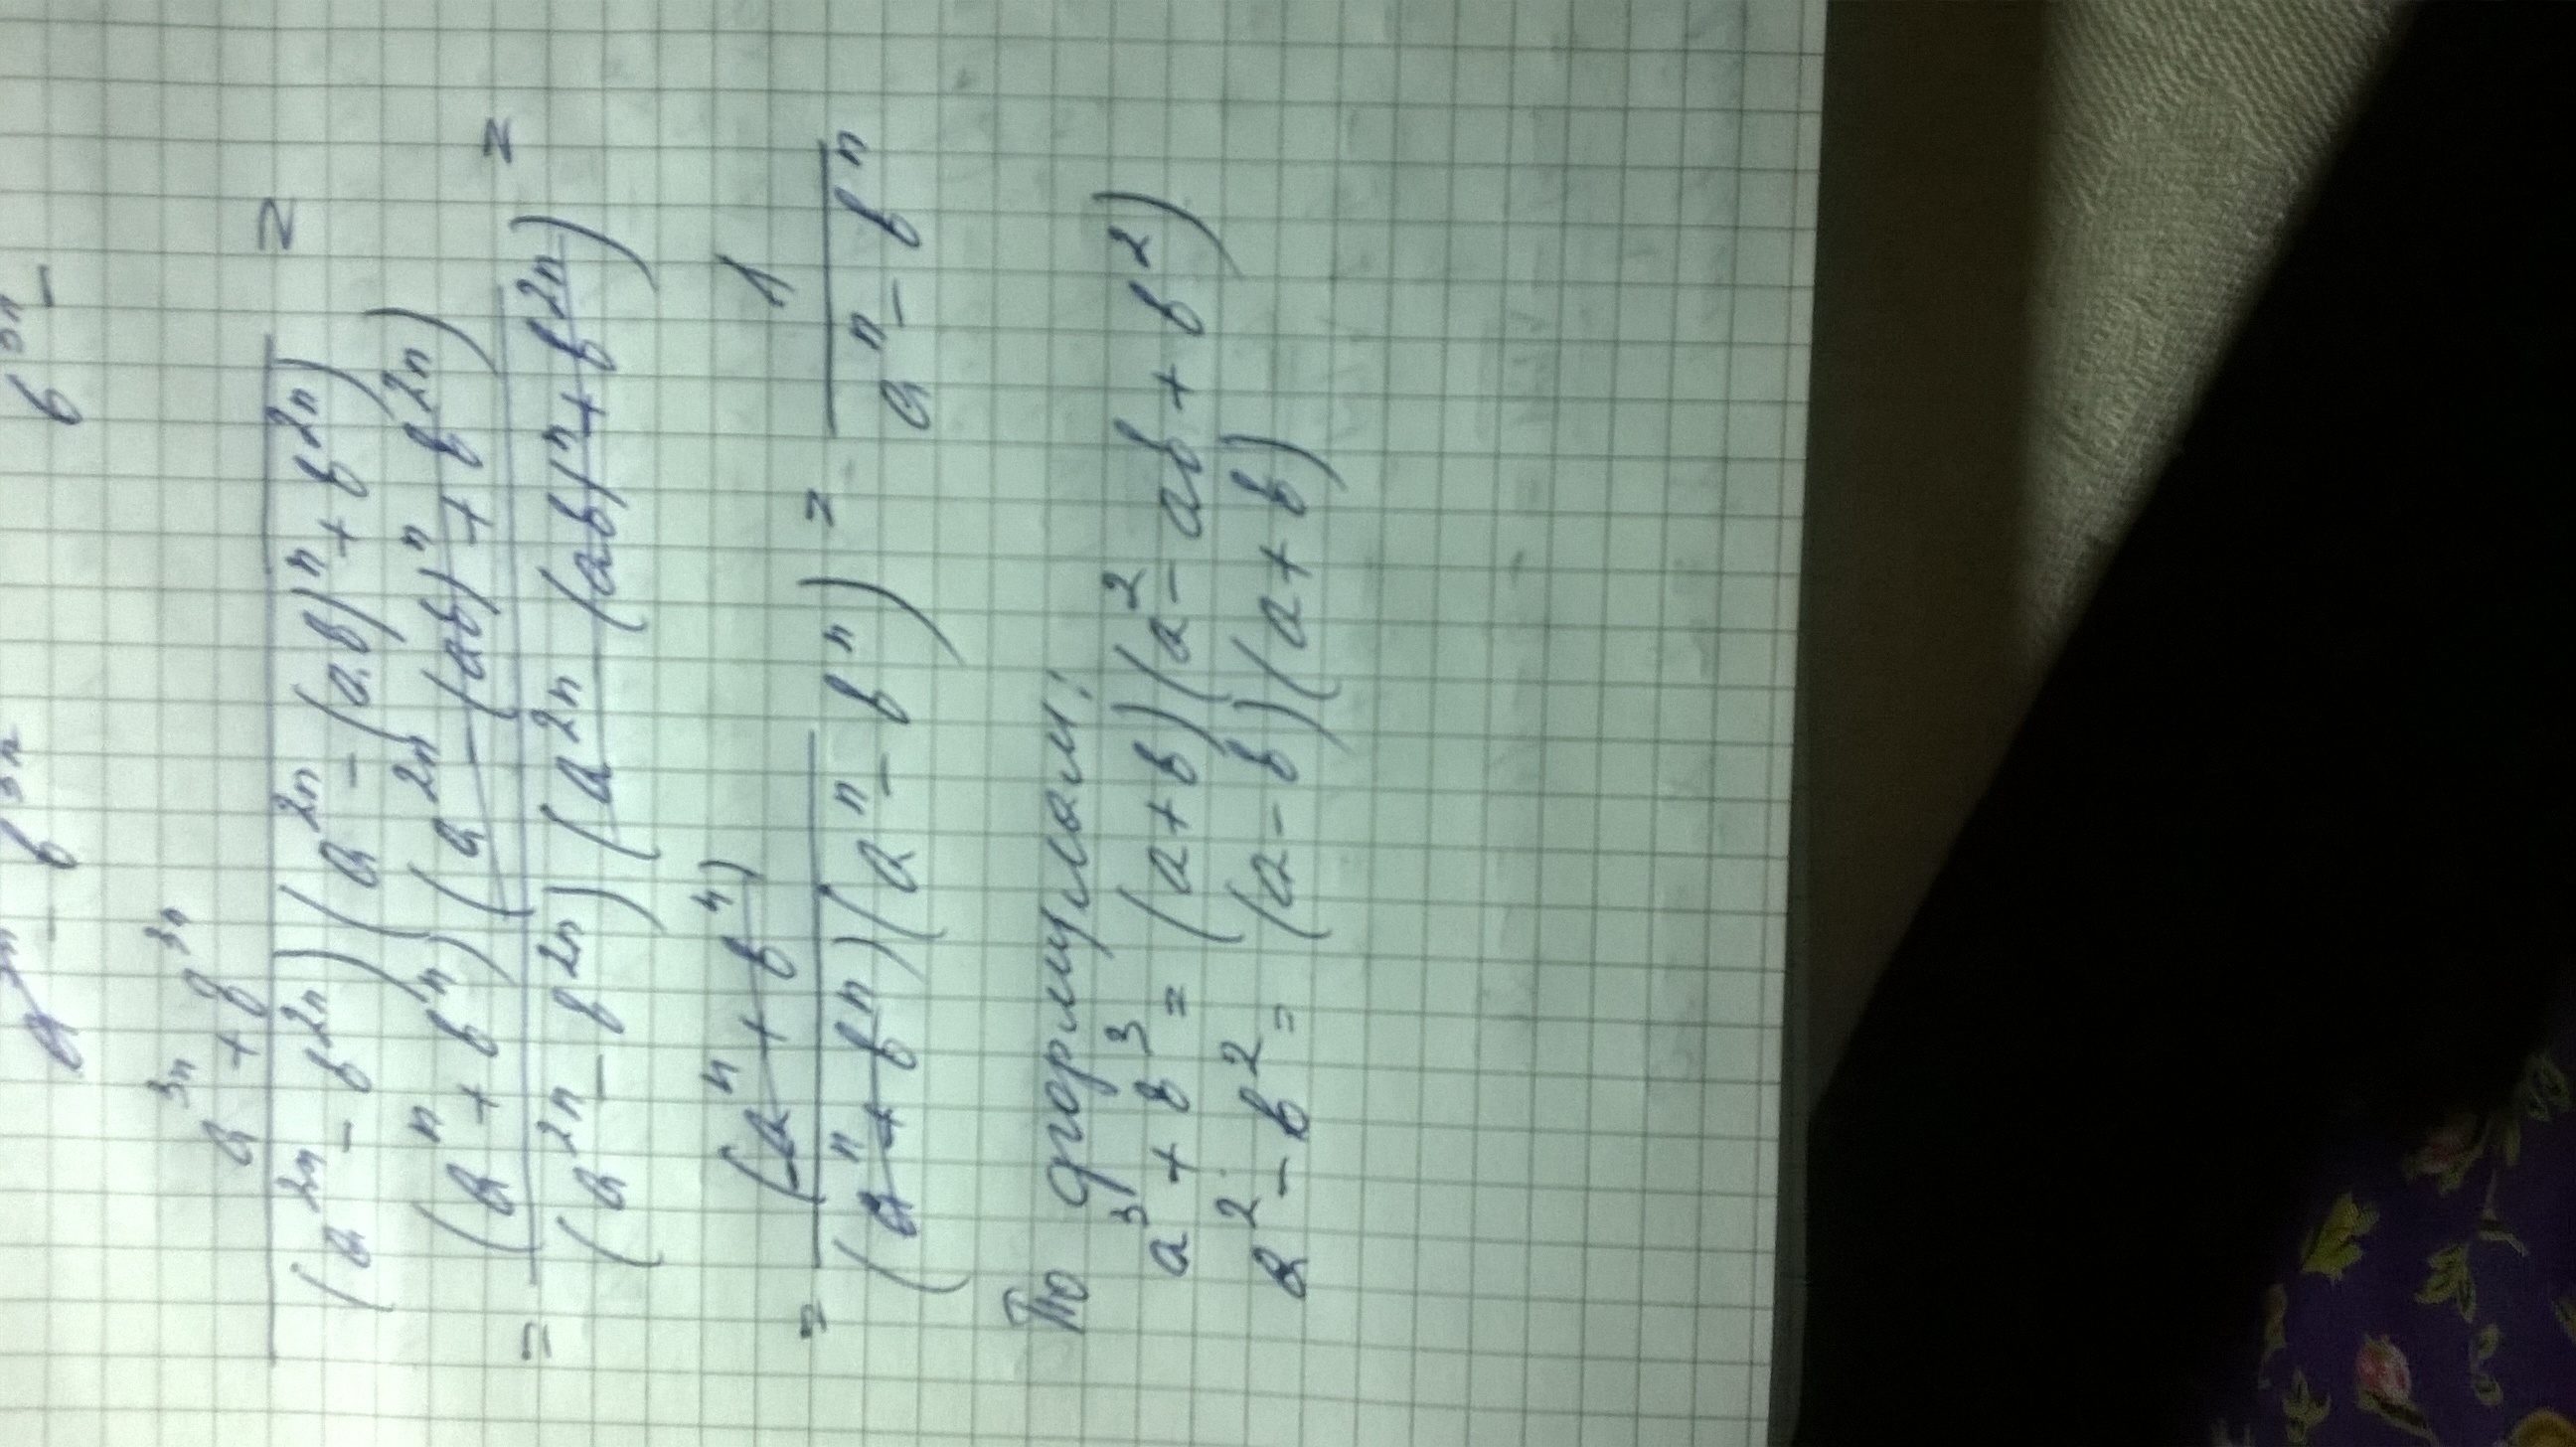 a³ⁿ + b³ⁿ
(a²ⁿ - b²ⁿ)(a²ⁿ - (ab)ⁿ + b²ⁿ) =
= (aⁿ + bⁿ)(a²ⁿ - (ab)ⁿ + b²ⁿ)
(a²ⁿ - b²ⁿ)(a²ⁿ (ab)ⁿ + b²ⁿ) =
= (aⁿ + bⁿ)
(aⁿ + bⁿ)(aⁿ - bⁿ) = 1
aⁿ - bⁿ
По формулам:
a³ + b³ = (a + b)(a² - ab + b²)
a² - b² = (a - b)(a + b)